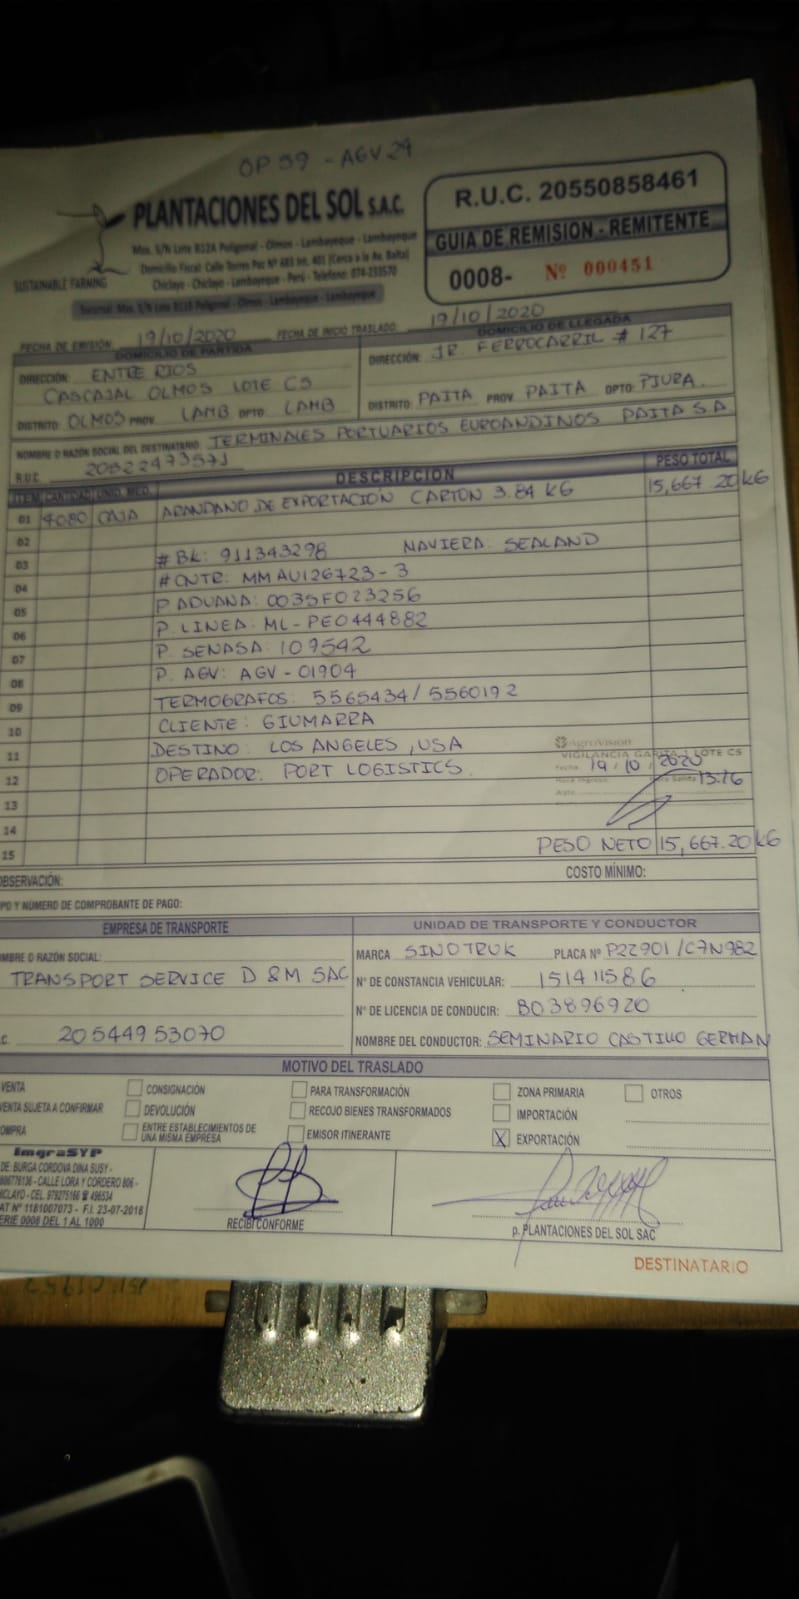 OP 59 - AGV 29
PLANTACIONES DEL SOL S.A.C.
R.U.C. 20550858461
GUIA DE REMISION - REMITENTE
0008- Nº 000451
Mza. S/N Lote B12A Poligonal - Olmos - Lambayeque - Lambayeque
Domicilio Fiscal: Calle Torres Paz Nº 483 Int. 401 (Cerca a la Av. Balta)
Chiclayo - Chiclayo - Lambayeque - Perú - Telefono: 074-233570
SUSTAINABLE FARMING
Sucursal: Mza. S/N Lote B11B Poligonal - Olmos - Lambayeque - Lambayeque
FECHA DE EMISIÓN: 19/10/2020 FECHA DE INICIO TRASLADO: 19/10/2020
DOMICILIO DE PARTIDA
DIRECCIÓN: ENTRE RIOS
CASCAJAL OLMOS LOTE C5
DISTRITO: OLMOS PROV. LAMB DPTO. LAMB
DOMICILIO DE LLEGADA
DIRECCIÓN: JR. FERROCARRIL # 127
DISTRITO: PAITA PROV. PAITA DPTO: PIURA.
NOMBRE O RAZÓN SOCIAL DEL DESTINATARIO: TERMINALES PORTUARIOS EUROANDINOS PAITA S.A
R.U.C. 20522473571
ITEM CANTIDAD UNID. MED. DESCRIPCION PESO TOTAL
01 4080 CAJA ARANDANO DE EXPORTACIÓN CARTON 3.84 KG 15,667.20 KG
02
03 # BK: 911343298 NAVIERA: SEALAND
04 # CNTR: MMAU126723-3
05 P. ADUANA: 0035F023256
06 P. LINEA: ML-PE0444882
07 P. SENASA: 109542
08 P. AGV: AGV-01904
09 TERMOGRAFOS: 5565434/5560192
10 CLIENTE: GIUMARRA
11 DESTINO: LOS ANGELES, USA
12 OPERADOR: PORT LOGISTICS
13
14
15
AgroVision
VIGILANCIA GARITA 1 LOTE C5
Fecha: 19/10/2020
13:16
PESO NETO 15,667.20 KG
OBSERVACIÓN: COSTO MÍNIMO:
PO Y NÚMERO DE COMPROBANTE DE PAGO:
EMPRESA DE TRANSPORTE
MBRE O RAZÓN SOCIAL:
TRANSPORT SERVICE D & M SAC
C. 20544953070
UNIDAD DE TRANSPORTE Y CONDUCTOR
MARCA SINOTRUK PLACA Nº P2Z901/C7N982
Nº DE CONSTANCIA VEHICULAR: 151411586
Nº DE LICENCIA DE CONDUCIR: B03896920
NOMBRE DEL CONDUCTOR: SEMINARIO CASTILLO GERMAN
MOTIVO DEL TRASLADO
VENTA CONSIGNACIÓN PARA TRANSFORMACIÓN ZONA PRIMARIA OTROS
VENTA SUJETA A CONFIRMAR DEVOLUCIÓN RECOJO BIENES TRANSFORMADOS IMPORTACIÓN
OMPRA ENTRE ESTABLECIMIENTOS DE UNA MISMA EMPRESA EMISOR ITINERANTE X EXPORTACIÓN
ImgraSYP
DE: BURGA CORDOVA DINA SUSY -
806776136 - CALLE LORA Y CORDERO 806 -
HICLAYO - CEL. 979275166 ☎ 496534
AT Nº 1181007073 - F.I. 23-07-2018
ERIE 0008 DEL 1 AL 1000
RECIBI CONFORME
p. PLANTACIONES DEL SOL SAC
DESTINATARIO